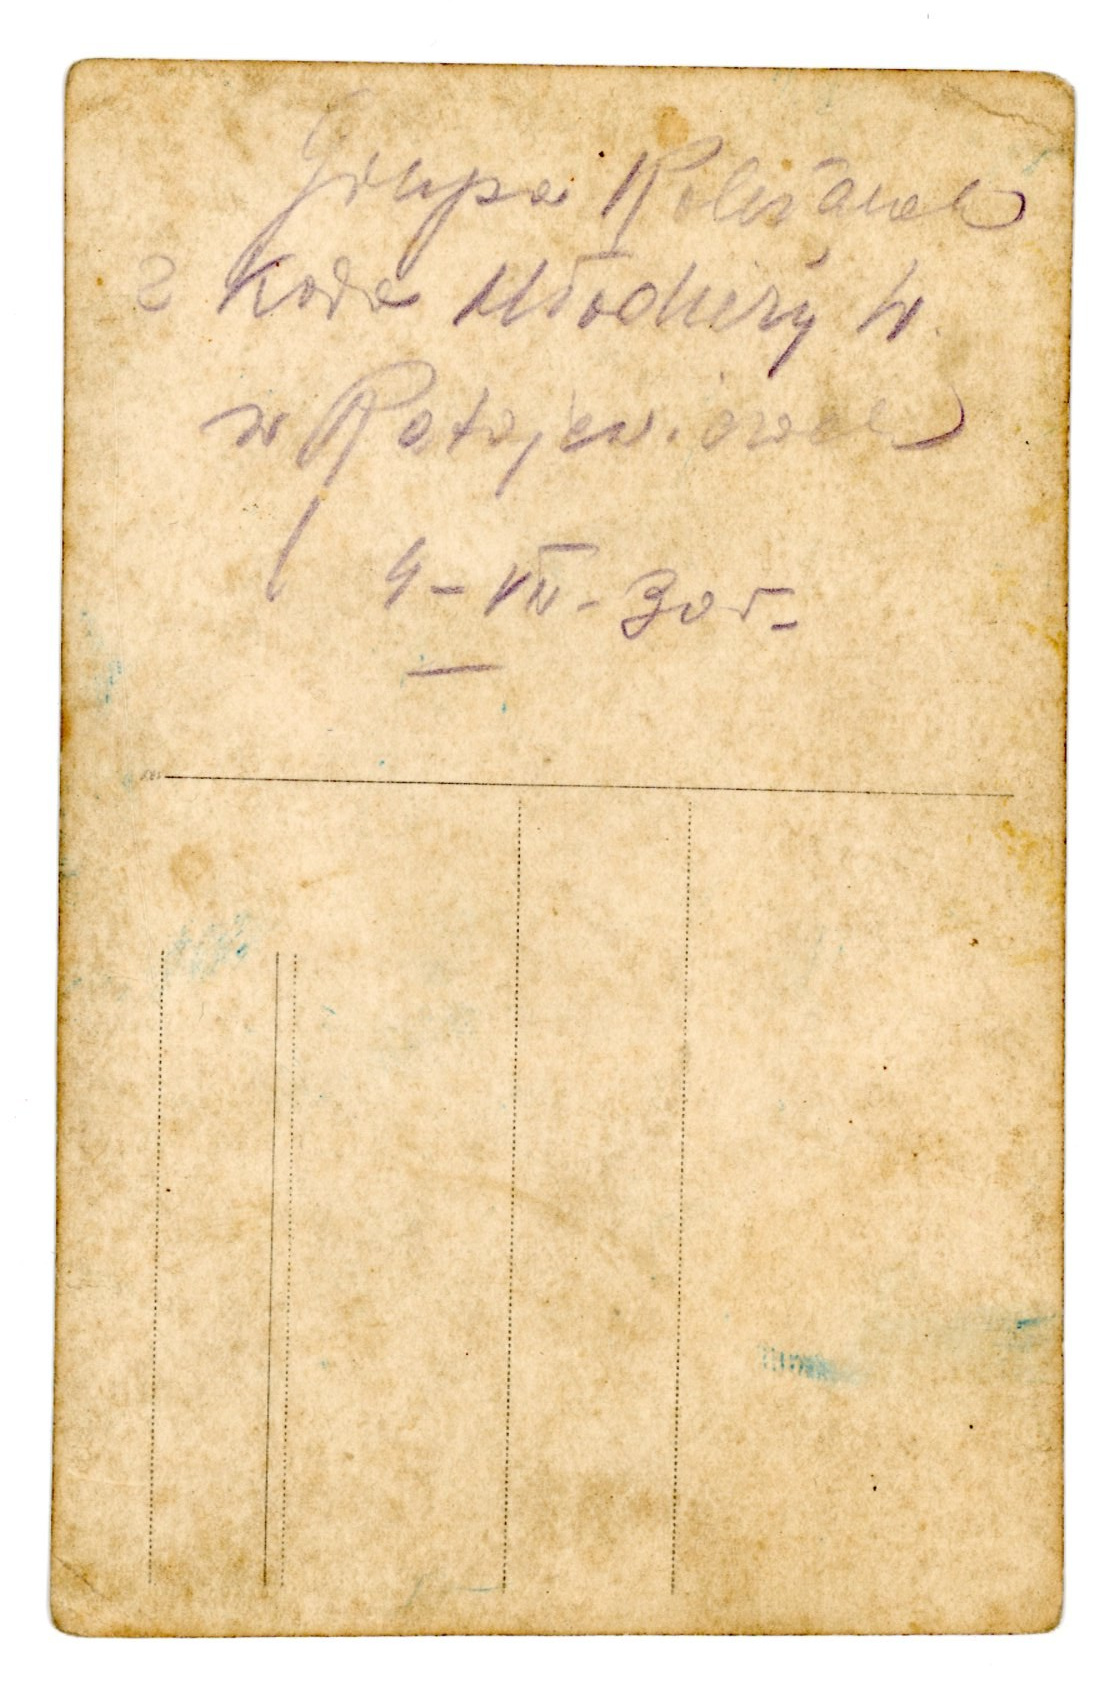 Grupa Koleżanek
z Koła Młodzieży W.
w Ratajewicach
4-VII-30r.